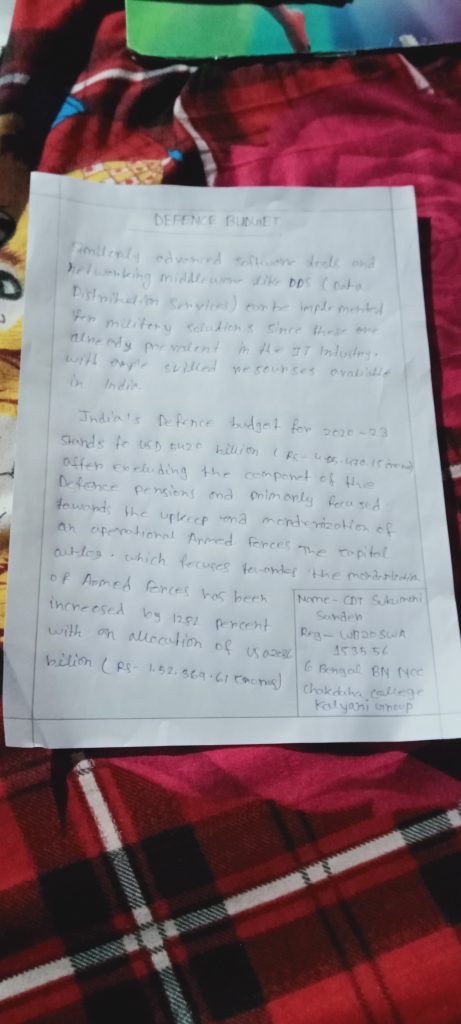 DEFENCE BUDGET
advanced software deals and
networking middleware like DDS (Data
Distribution Services) can be implemented
for military solutions since these are
already prevalent in the IT Industry.
with ample skilled resourses available
in India.
India's Defence budget for 2020-23
Stands to USD billion (RS-
after excluding the componet of the
Defence pensions and primarily focused
towards the upkeep and
an operational Armed forces The capital
which focuses the
of Armed forces has been
increased by percent
with an allocation of
bilion (RS- 1.52.369.61
Name - CDT Sukumoni
Sanden
Reg - WB20SWA
153556
6 Bengal BN NCC
Chakdaha college
Kalyani Group